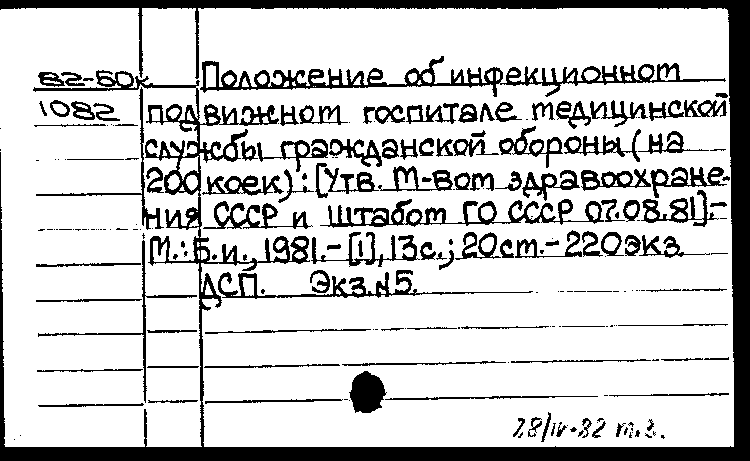 82-50к Положение об инфекционном
1082 подвижном госпитале медицинской
службы гражданской обороны (на
200 коек): [Утв. М-вом здравоохране-
ния СССР и Штабом ГО СССР 07.08.81].-
М.: Б.и., 1981.- [1], 13с.; 20см.- 220экз.
ДСП. Экз.N5.
28/IV-82 т.з.